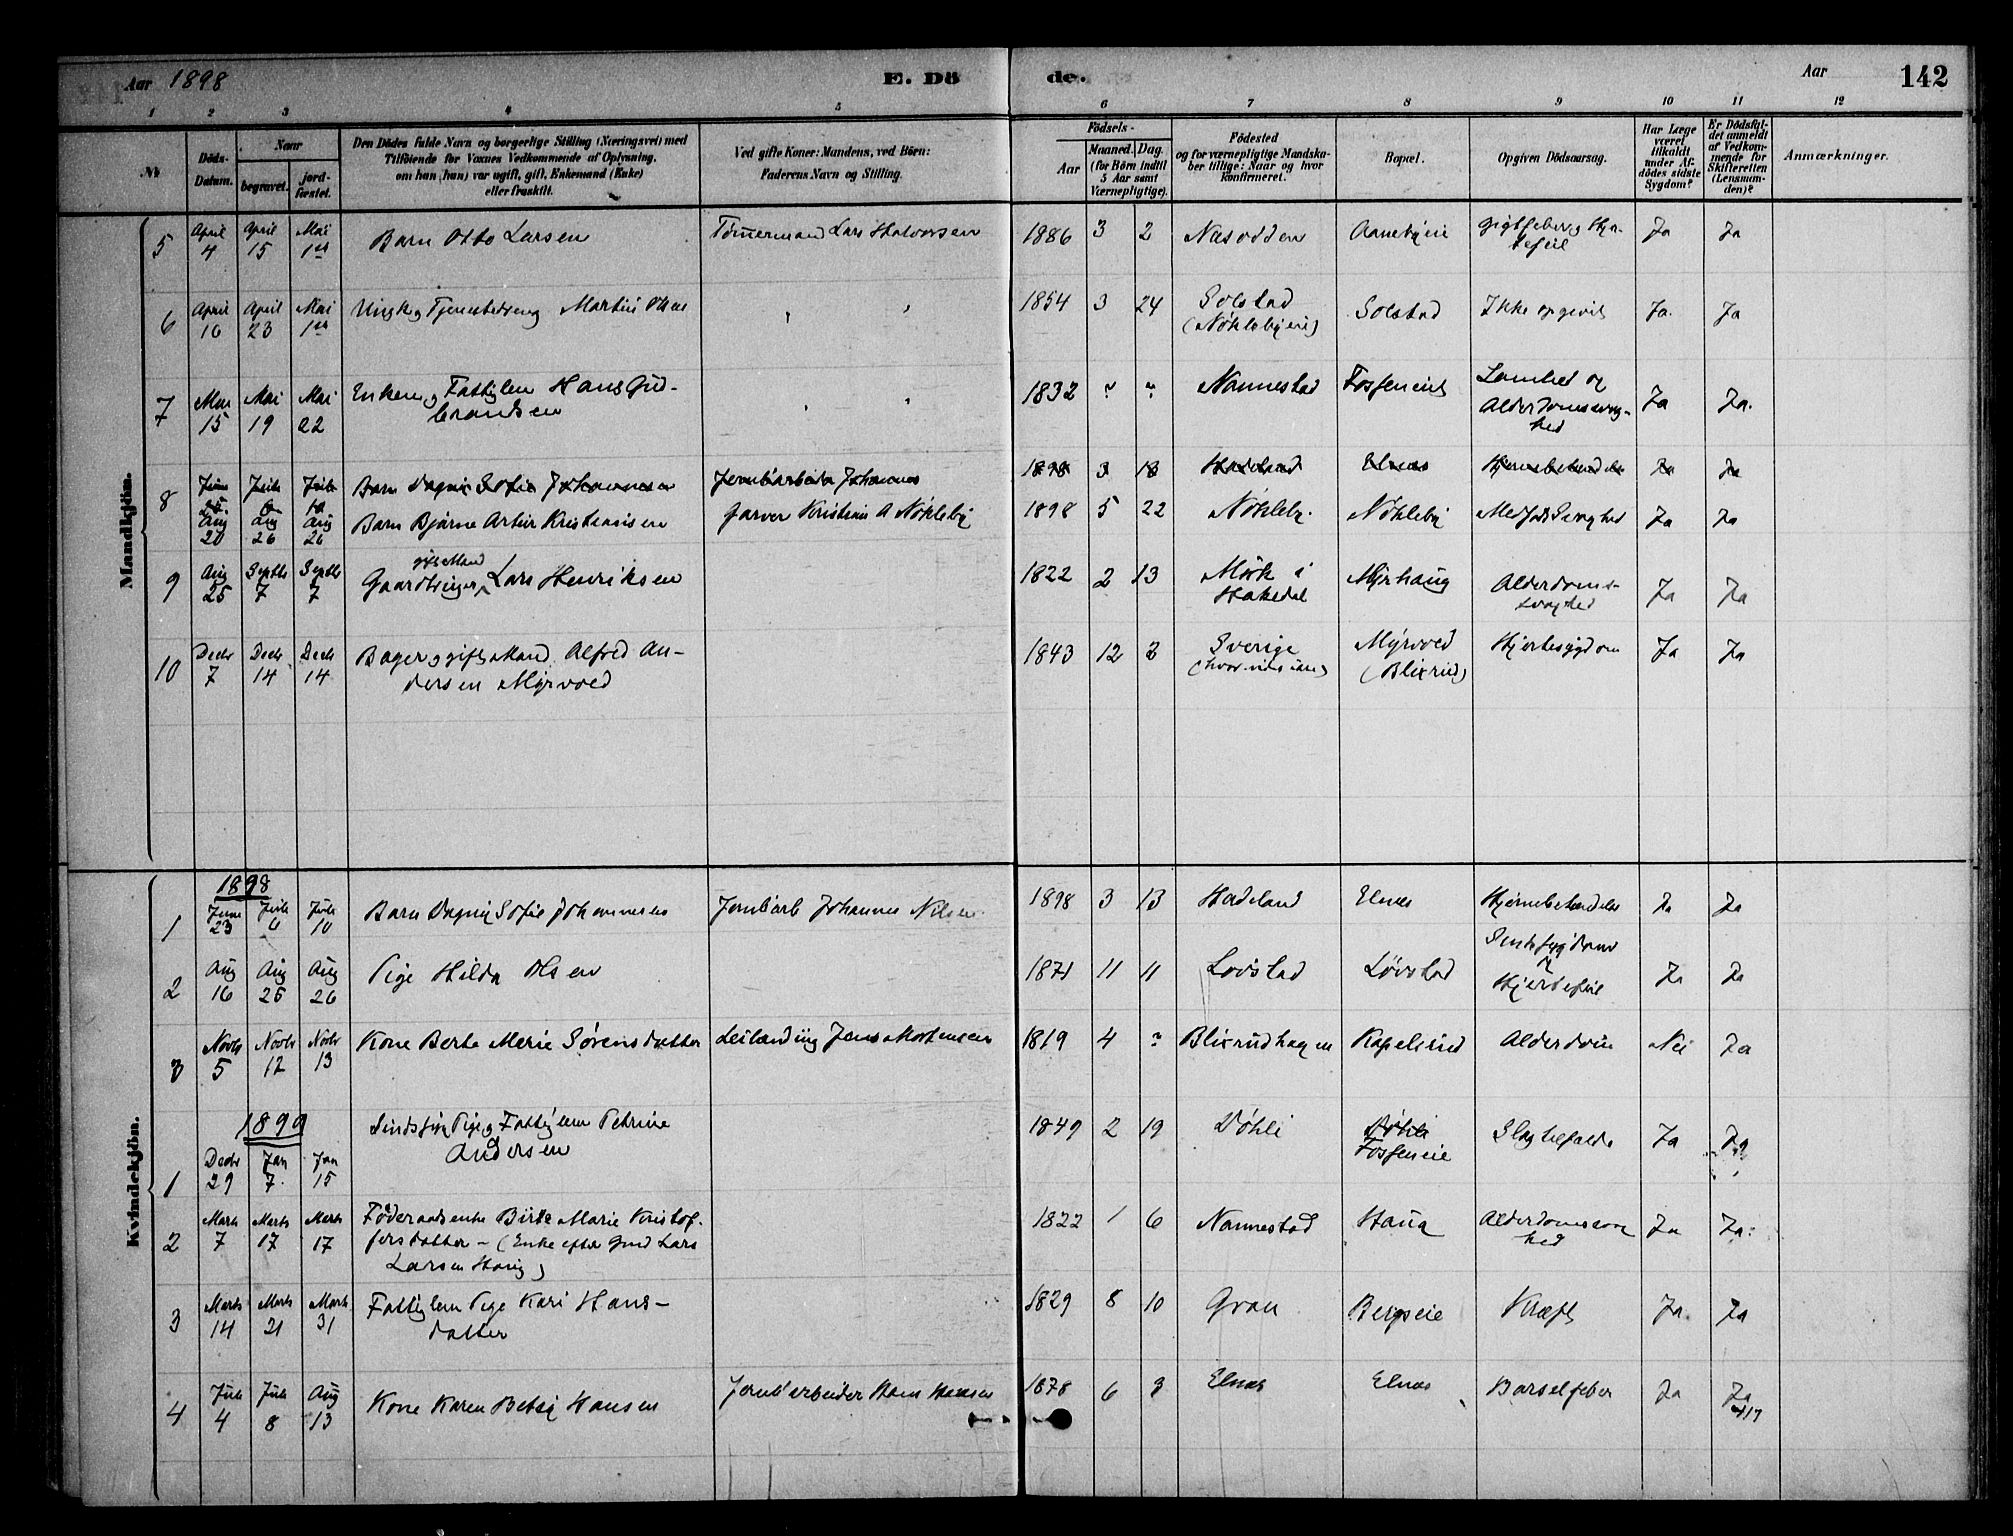 Aar 1898
E. Dö
de.
Aar
142
1 2 3 4 5 6 7 8 9 10 11 12
№
Döds-
Datum.
Naar
begravet.
jord-
fæstet.
Den Dödes fulde Navn og borgerlige Stilling (Næringsvei) med
Tilföiende for Voxnes Vedkommende af Oplysning,
om han (hun) var ugift, gift, Enkemand (Enke)
eller fraskilt.
Ved gifte Koner: Mandens, ved Börn:
Faderens Navn og Stilling.
Födsels-
Aar
Maaned. Dag.
(for Börn indtil
5 Aar samt
Værnepligtige).
Födested
og for værnepligtige Mandska-
ber tillige: Naar og hvor
konfirmeret.
Bopæl.
Opgiven Dödsaarsag.
Har Læge
været
tilkaldt
under Af-
dödes sidste
Sygdom?
Er Dödsfal-
det anmeldt
af Vedkom-
mende for
Skifteretten
(Lensman-
den)?
Anmærkninger.
Mandkjön.
5 April 4 April 15 Mai 1ste Barn Otto Larsen Tømmermand Lars Halvorsen 1886 3 2 Næsodden Aanebyeie Ja Ja
6 April 16 April 23 Mai 1ste Ungk. Tjenestedreng Martin Olsen " " 1854 3 24 Solstad
(Nöklebyeie) Solstad Ikke opgivet Ja. Ja
7 Mai 15 Mai 19 Mai 22 Enkem. Fattiglem Hans Gud-
brandsen " " 1832 " " Nannestad Fosseneie Lamhed og
Alderdomssvag-
hed Ja Ja.
Juni 23 Juli 6 Juli 10 Barn Dagny Sofie Johannesen Jernbarbeider Johannes 1898 3 13 Hadeland Elnæs Hjernebetændelse Ja Ja
8 Aug 20 Aug 26 Aug 26 Barn Bjarne Artur Kristiansen Garver Kristian A Nökleby 1898 5 22 Nökleby Nökleby Medfødt Svaghed Ja Ja
9 Aug 25 Septbr 7 Septbr 7 gift Mand
Gaardbruger Lars Henriksen 1822 2 13 Mörk i
Hakedal Myrhaug Alderdoms-
svaghed Ja Ja
10 Decbr 7 Decbr 14 Decbr 14 Bager, gift Mand Alfred An-
dersen Myrvold 1843 12 2 Sverige
(hvor vides ikke) Myrvold
(Blixrud) Hjertesygdom Ja Ja
Kvindekjön.
1898
1 Juni 23 Juli 6 Juli 10 Barn Dagny Sofie Johannesen Jernbarb Johannes Nilsen 1898 3 13 Hadeland Elnæs Hjernebetændelse Ja Ja
2 Aug 16 Aug 25 Aug 26 Pige Hilda Olsen 1871 11 11 Lövstad Lövstad Sindssygdom
Hjertefeil Ja Ja
3 Novbr 5 Novbr 12 Novbr 13 Kone Berte Marie Sörensdatter Leilænding Jens Mortensen 1819 4 ? Blixrudhagen Kapelsrud Alderdom Nei Ja
1899
1 Decbr 29 Jan 7. Jan 15 Sindssyg Pige, Fattiglem Petrine
Andersen 1849 2 19 Döhli Döhli
Fosseneie Slagtilfælde Ja Ja
2 Marts 7 Marts 17 Marts 17 Föderaadsenke Birte Marie Kristof-
fersdatter – (Enke efter Gmd Lars
Larsen Haug) 1822 1 6 Nannestad Haug Alderdomssvag
hed Ja Ja.
3 Marts 14 Marts 21 Marts 31 Fattiglem Pige Kari Hans-
datter 1829 8 10 Gran Bergseie Kræft Ja. Ja
4 Juli 4 Juli 8 Aug 13 Kone Karen Betsy Hansen Jernbarbeider Hans Hansen 1878 6 3 Elnæs Elnæs Barselfeber Ja Ja
4/7